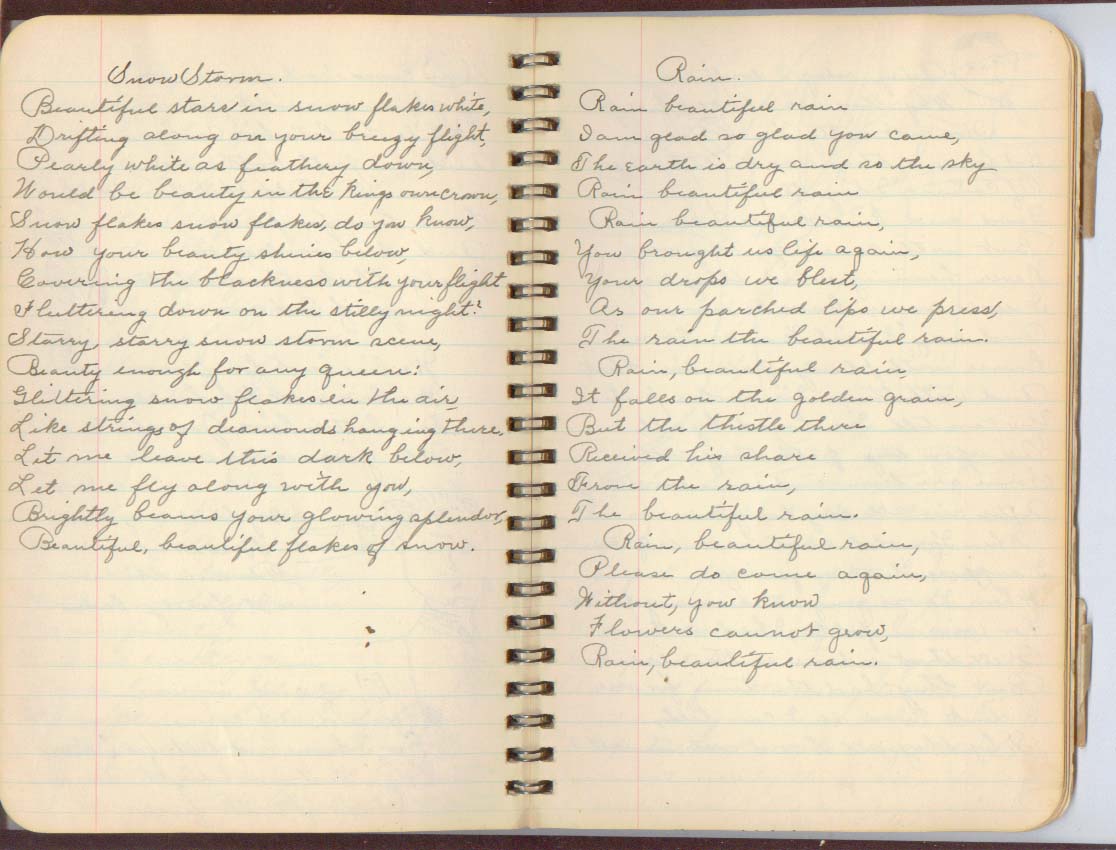 Snow Storm.
Beautiful stars in snow flakes white,
Drifting along on your breezy flight,
Pearly white as feathery down,
Would be beauty in the kings own crown,
Snow flakes snow flakes, do you know,
How your beauty shines below,
Covering the blackness with your flight
Fluttering down on the stilly night?
Starry, starry snow storm scene,
Beauty enough for any queen:
Glittering snow flakes in the air,
Like strings of diamonds hanging there,
Let me leave this dark below,
Let me fly along with you,
Brightly beams your glowing splendor,
Beautiful, beautiful flakes of snow.
Rain.
Rain beautiful rain
I am glad so glad you came,
The earth is dry and so the sky
Rain beautiful rain
Rain beautiful rain,
You brought us life again,
Your drops we blest,
As our parched lips we press,
The rain the beautiful rain.
Rain, beautiful rain,
It falls on the golden grain,
But the thistle there
Received his share
From the rain,
The beautiful rain.
Rain, beautiful rain,
Please do come again,
Without, you know
Flowers cannot grow,
Rain, beautiful rain.